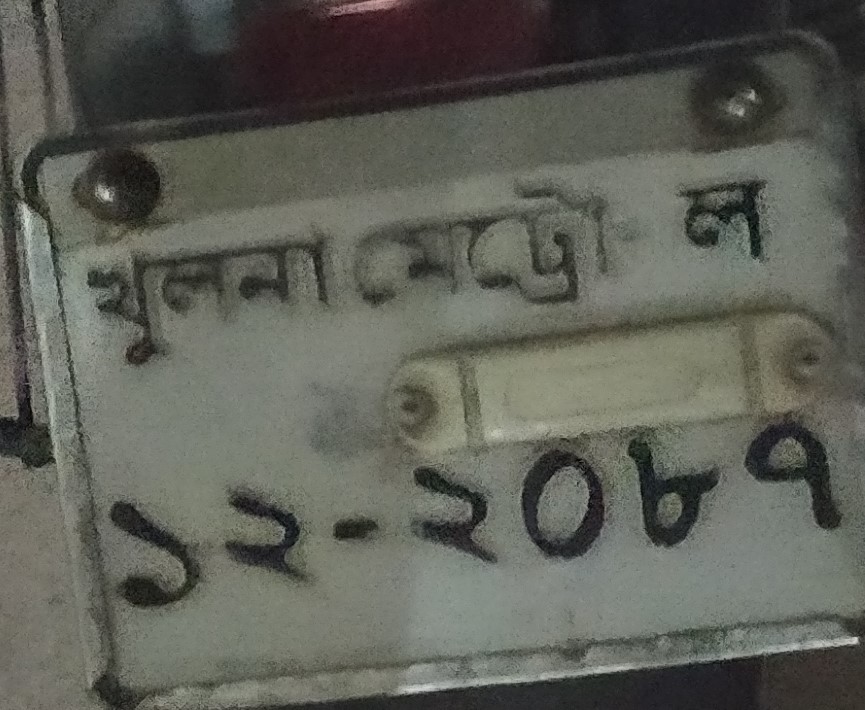 খুলনা মেট্রো-ল
১২-২০৮৭